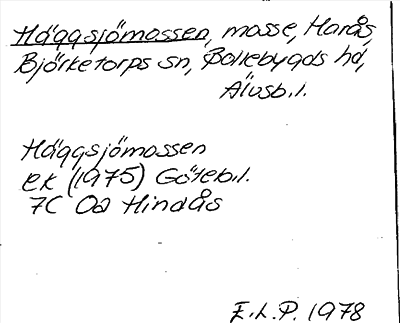 Häggsjömossen, mosse, Harås,
Björketorps sn, Bollebygds hd,
Älvsb.l.
Häggsjömossen
ek (1975) Göteb.l.
7C 0a Hindås
E.L.P. 1978